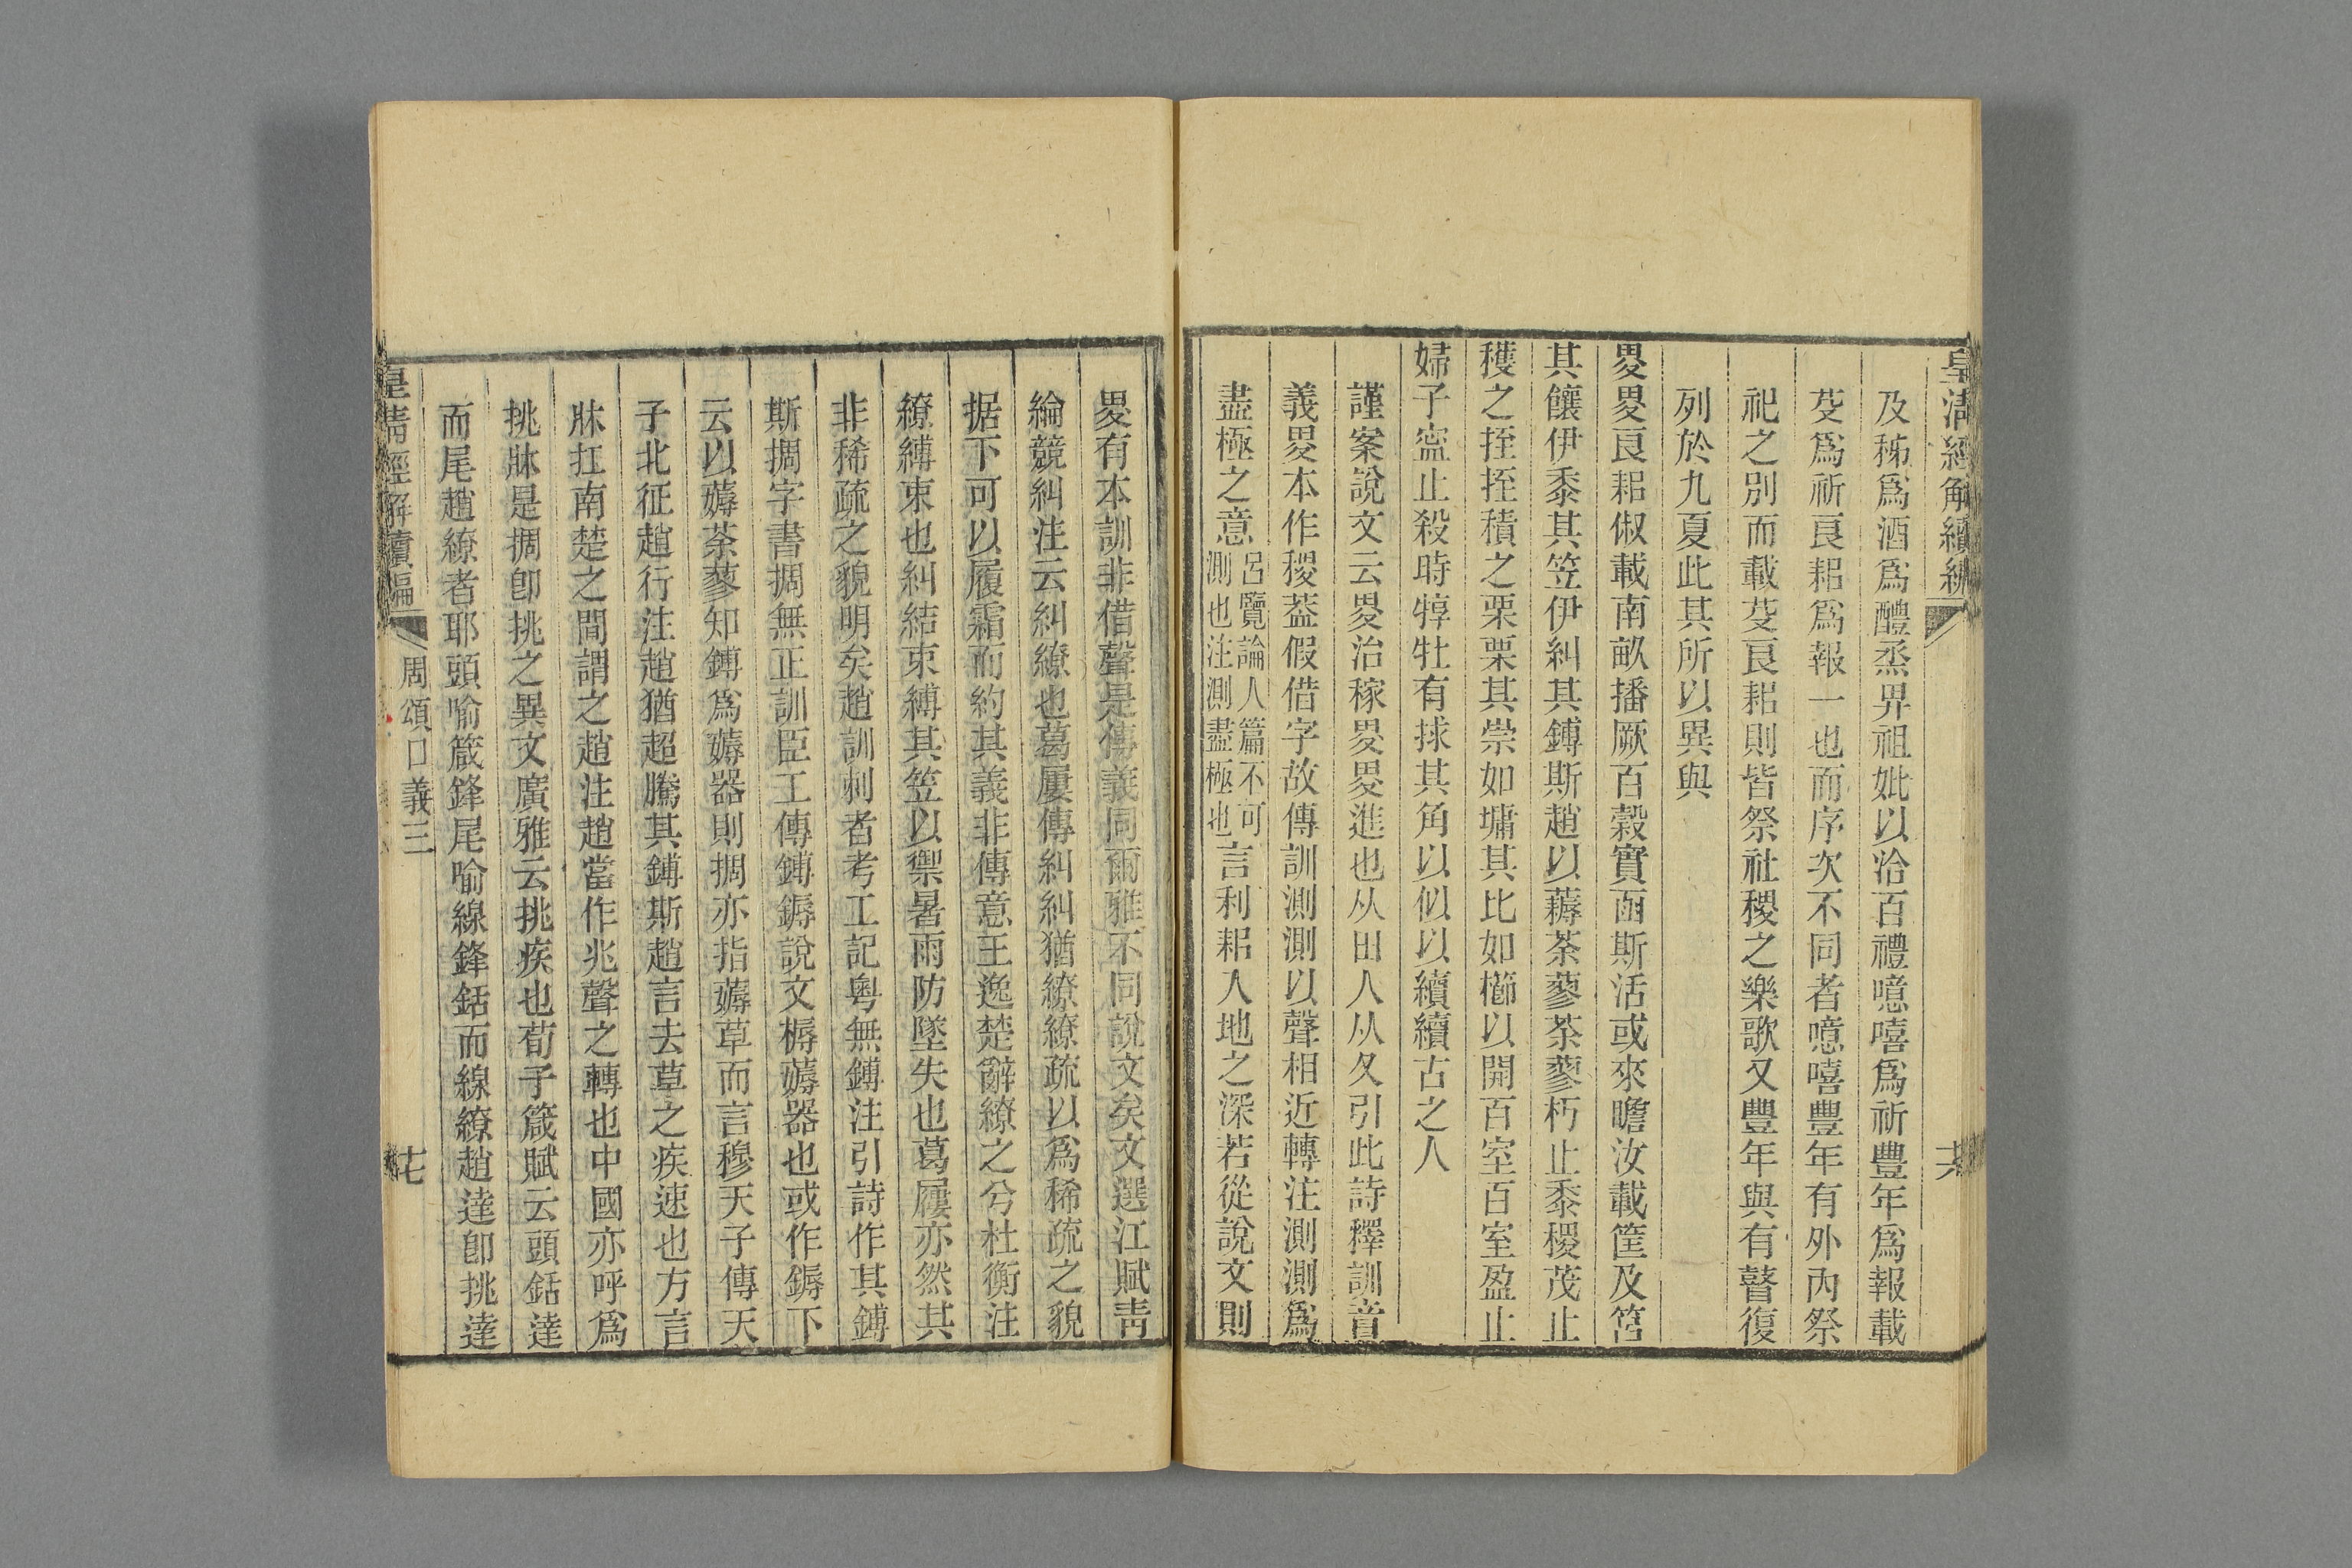 皇清經解續編
十六
及秭爲酒爲醴烝畀祖妣以洽百禮噫嘻爲祈豐年爲報載
芟爲祈良耜爲報一也而序次不同者噫嘻豐年有外內祭
祀之別而載芟良耜則皆祭社稷之樂歌又豐年與有瞽復
列於九夏此其所以異與
畟畟良耜俶載南畝播厥百穀實函斯活或來瞻汝載筐及筥
其饟伊黍其笠伊糾其鎛斯趙以薅荼蓼荼蓼朽止黍稷茂止
穫之挃挃積之栗栗其崇如墉其比如櫛以開百室百室盈止
婦子寍止殺時犉牡有捄其角以似以續續古之人
謹案說文云畟治稼畟畟進也从田人从夊引此詩釋訓音
義畟本作稷葢假借字故傳訓測測以聲相近轉注測測爲
盡極之意呂覽論人篇不可測也注測盡極也言利耜入地之深若從說文則
畟有本訓非借聲是傳義同爾雅不同說文矣文選江賦靑
綸競糾注云糾繚也葛屨傳糾糾猶繚繚疏以爲稀疏之貌
据下可以履霜而約其義非傳意王逸楚辭繚之兮杜衡注
繚縛束也糾結束縛其笠以禦暑雨防墜失也葛屨亦然其
非稀疏之貌明矣趙訓刺者考工記粵無鎛注引詩作其鎛
斯掆字書掆無正訓臣工傳鎛鎒說文槈薅器也或作鎒下
云以薅荼蓼知鎛爲薅器則掆亦指薅草而言穆天子傳天
子北征趙行注趙猶超騰其鎛斯趙言去草之疾速也方言
牀扛南楚之間謂之趙注趙當作兆聲之轉也中國亦呼爲
挑牀是掆卽挑之異文廣雅云挑疾也荀子箴賦云頭銛達
而尾趙繚者耶頭喻箴鋒尾喻線鋒銛而線繚趙達卽挑達
皇淸經解續編
周頌口義三
十七